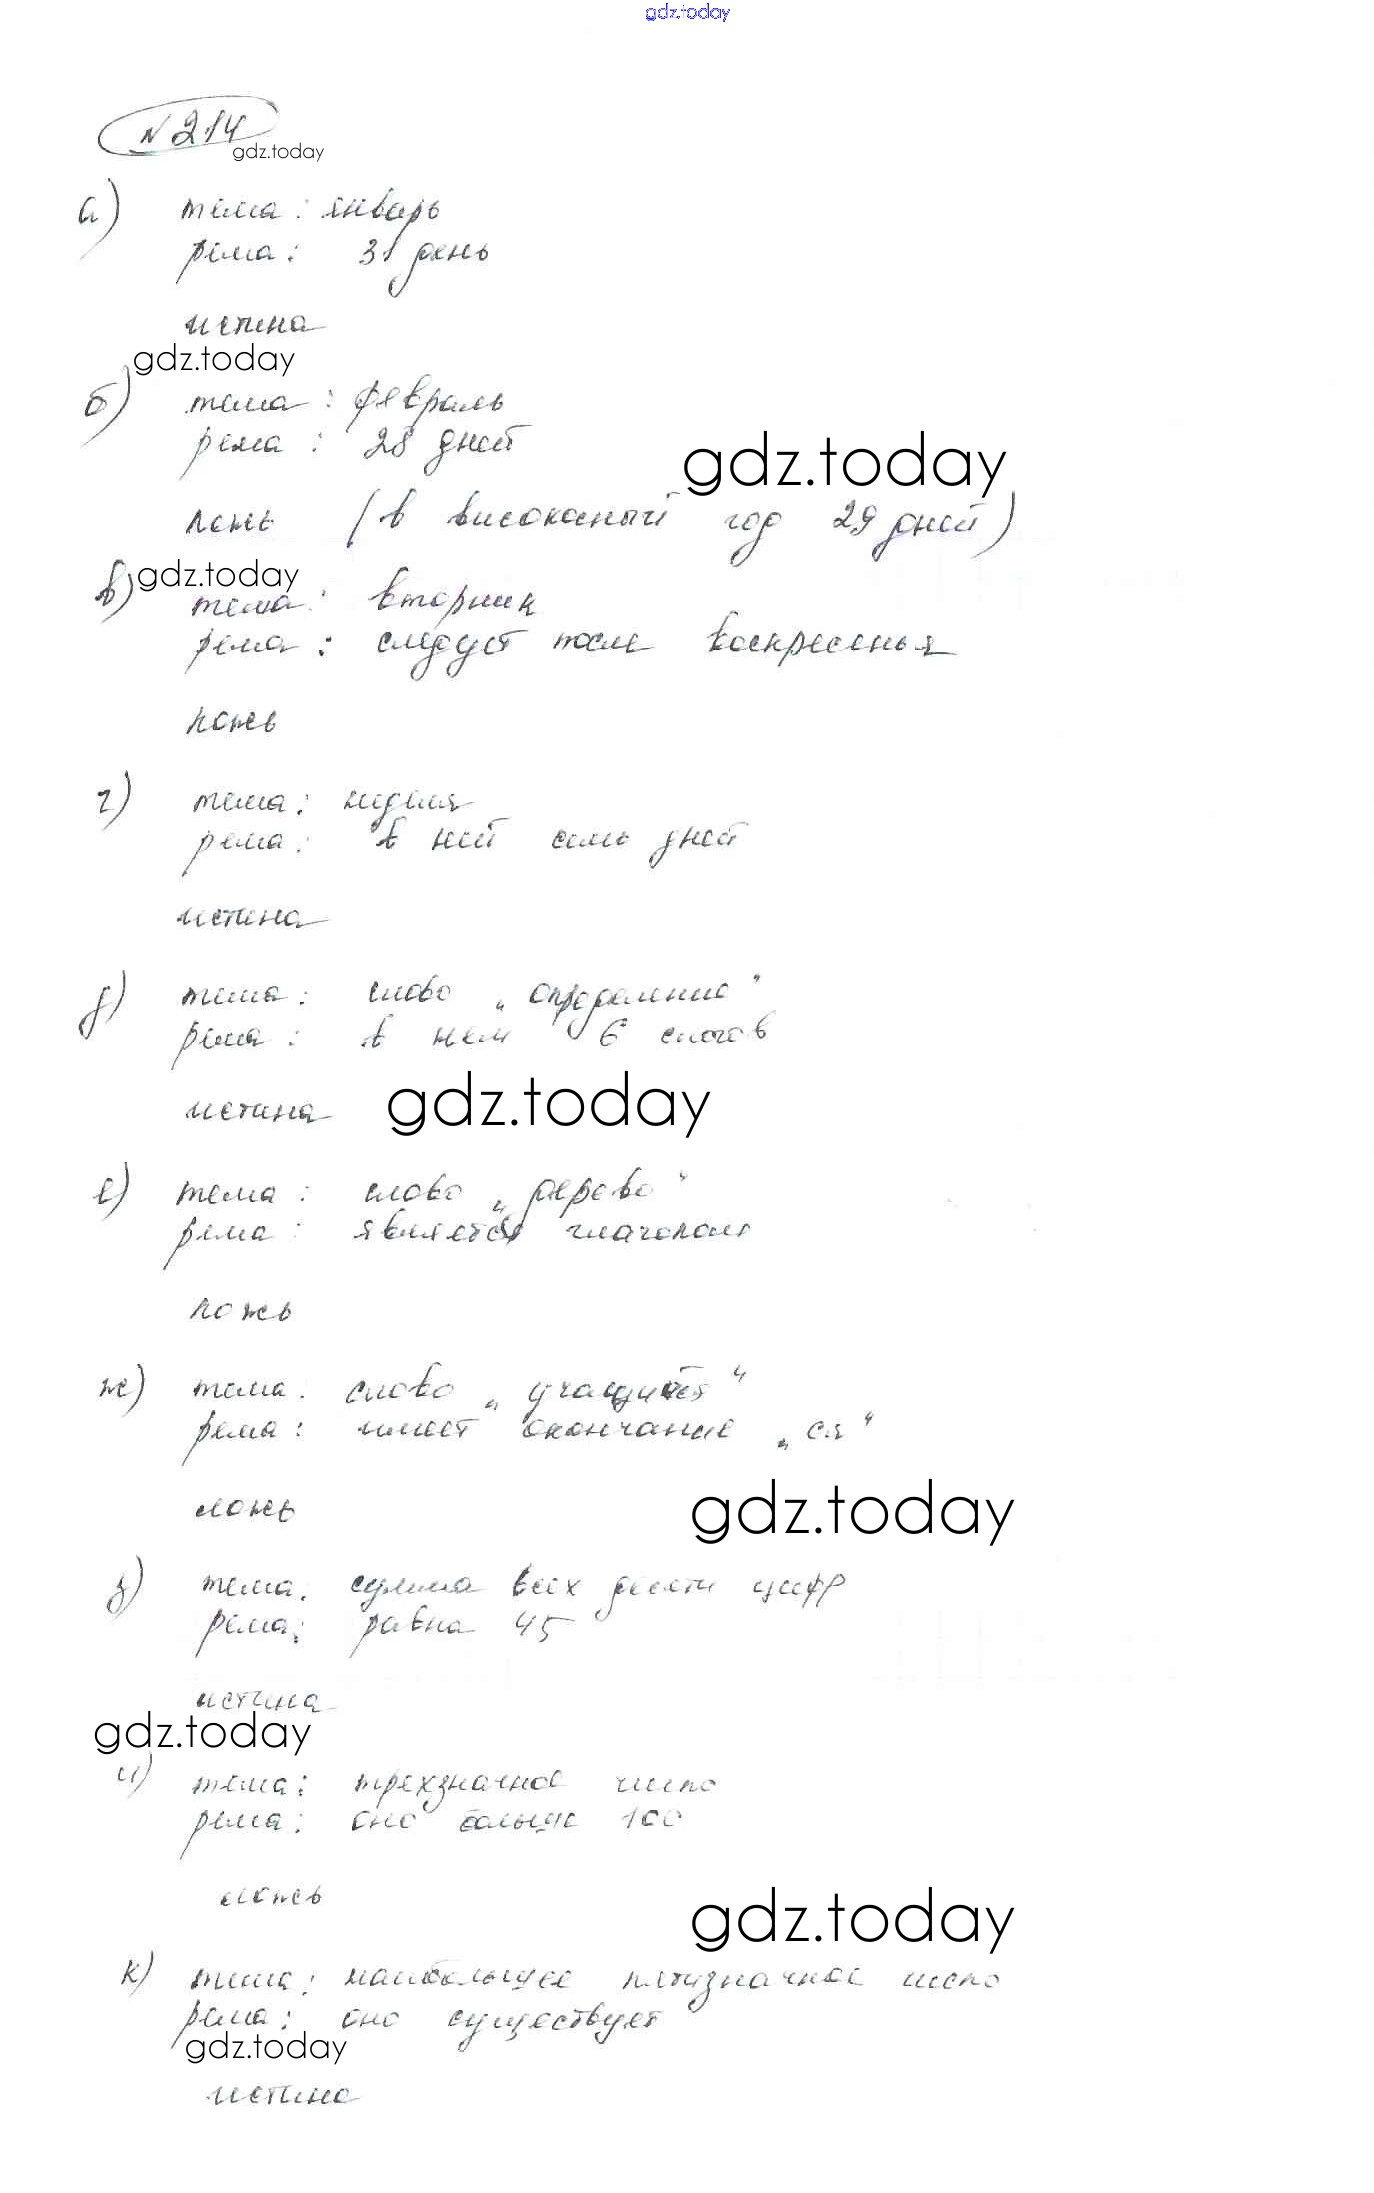 gdz.today
№ 214
gdz.today
а) тема: январь
рема: 31 день
истина
gdz.today
б) тема: февраль
рема: 28 дней
gdz.today
ложь (в високосный год 29 дней)
gdz.today
в) тема: вторник
рема: следует после воскресенья
ложь
г) тема: неделя
рема: в ней семь дней
истина
д) тема: слово „определение“
рема: в нем 6 слогов
истина
gdz.today
е) тема: слово „дерево“
рема: является глаголом
ложь
ж) тема: слово
рема: имеет окончание „ся“
ложь
gdz.today
з) тема: сумма всех десяти цифр
рема: равна 45
истина
gdz.today
и) тема: трехзначное число
рема: оно больше 100
ложь
gdz.today
к) тема: наибольшее пятизначное число
рема: оно существует
gdz.today
истина